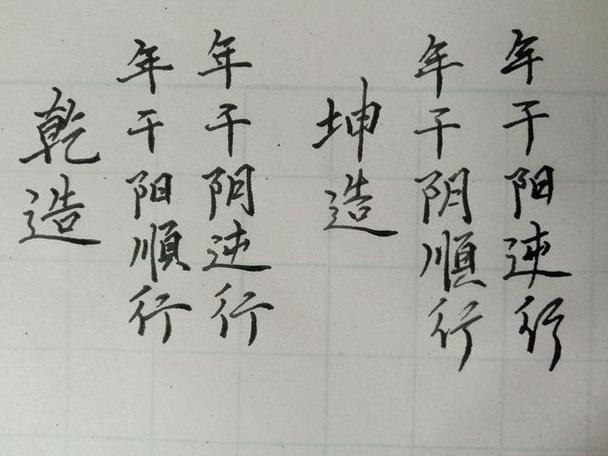 乾造
年干阳順行
年干阴逆行
坤造
年干阴順行
年干阳逆行